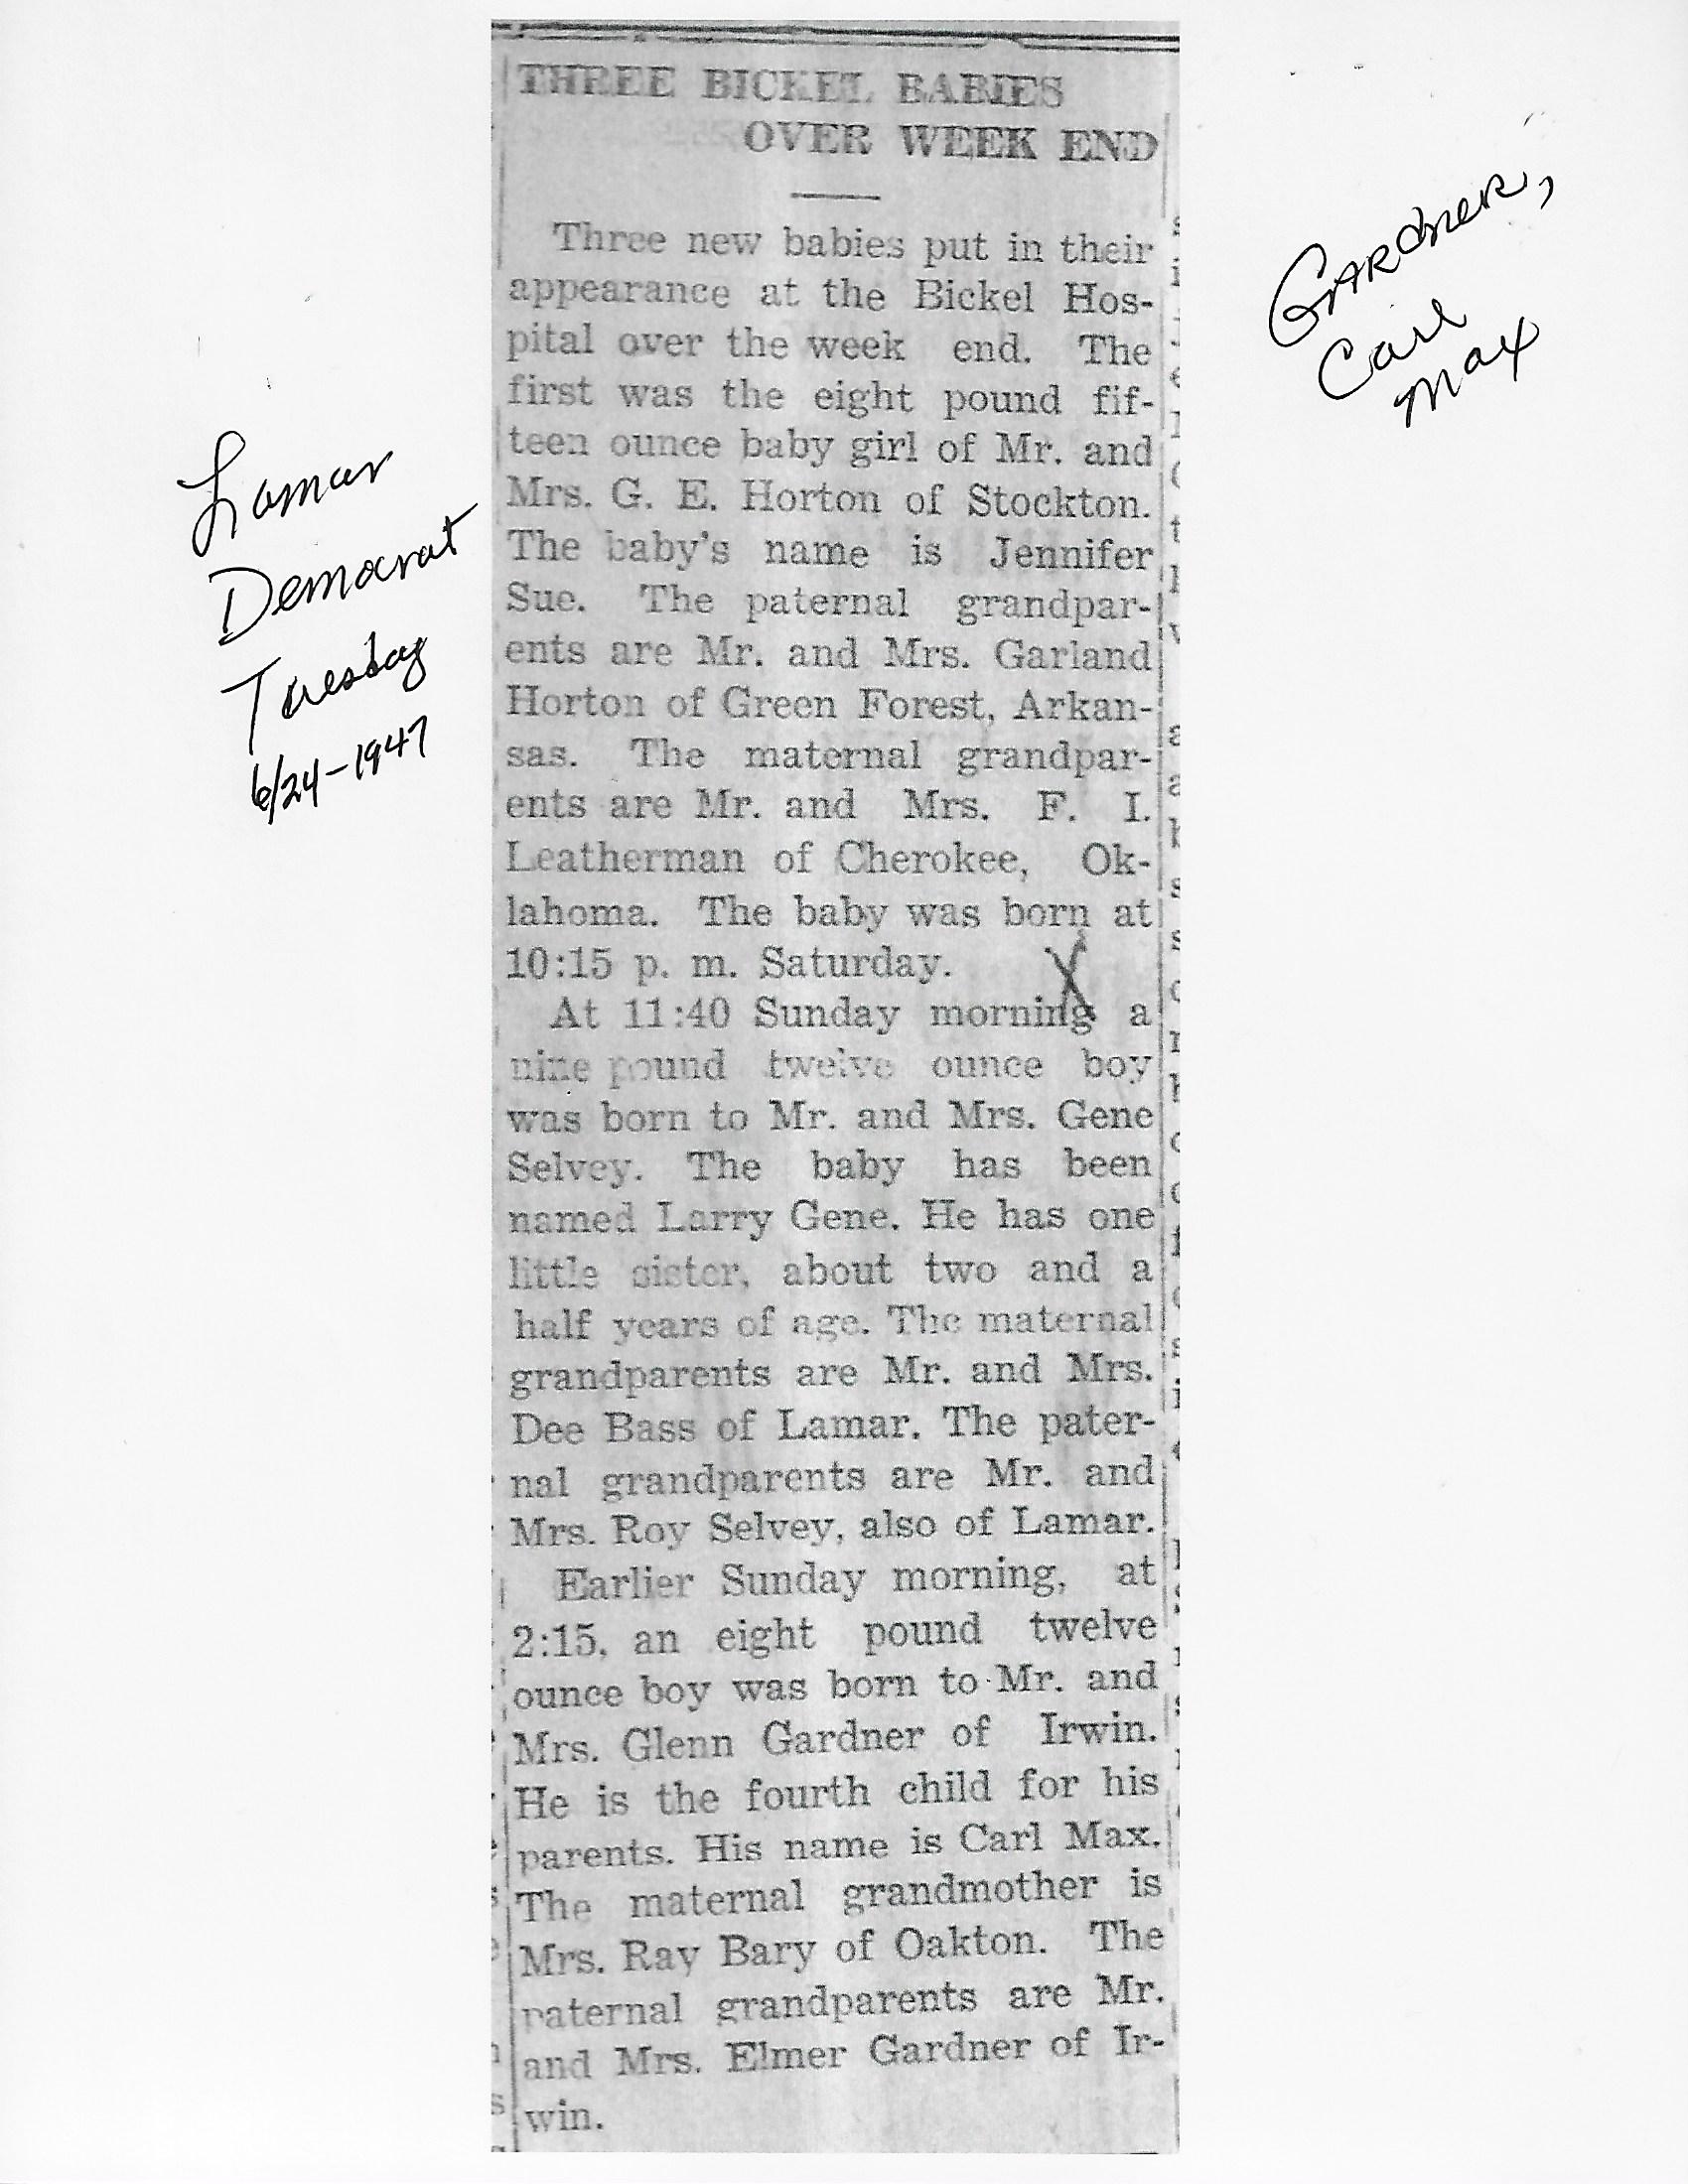 THREE BICKEL BABIES
OVER WEEK END
Three new babies put in their
appearance at the Bickel Hos-
pital over the week end. The
first was the eight pound fif-
teen ounce baby girl of Mr. and
Mrs. G. E. Horton of Stockton.
The baby's name is Jennifer
Sue. The paternal grandpar-
ents are Mr. and Mrs. Garland
Horton of Green Forest, Arkan-
sas. The maternal grandpar-
ents are Mr. and Mrs. F. I.
Leatherman of Cherokee, Ok-
lahoma. The baby was born at
10:15 p. m. Saturday.
X
At 11:40 Sunday morning a
nine pound twelve ounce boy
was born to Mr. and Mrs. Gene
Selvey. The baby has been
named Larry Gene. He has one
little sister, about two and a
half years of age. The maternal
grandparents are Mr. and Mrs.
Dee Bass of Lamar. The pater-
nal grandparents are Mr. and
Mrs. Roy Selvey, also of Lamar.
Earlier Sunday morning, at
2:15, an eight pound twelve
ounce boy was born to Mr. and
Mrs. Glenn Gardner of Irwin.
He is the fourth child for his
parents. His name is Carl Max.
The maternal grandmother is
Mrs. Ray Bary of Oakton. The
paternal grandparents are Mr.
and Mrs. Elmer Gardner of Ir-
win.
Lamar
Democrat
Tuesday
6/24-1947
GARdneR,
Carl
Max